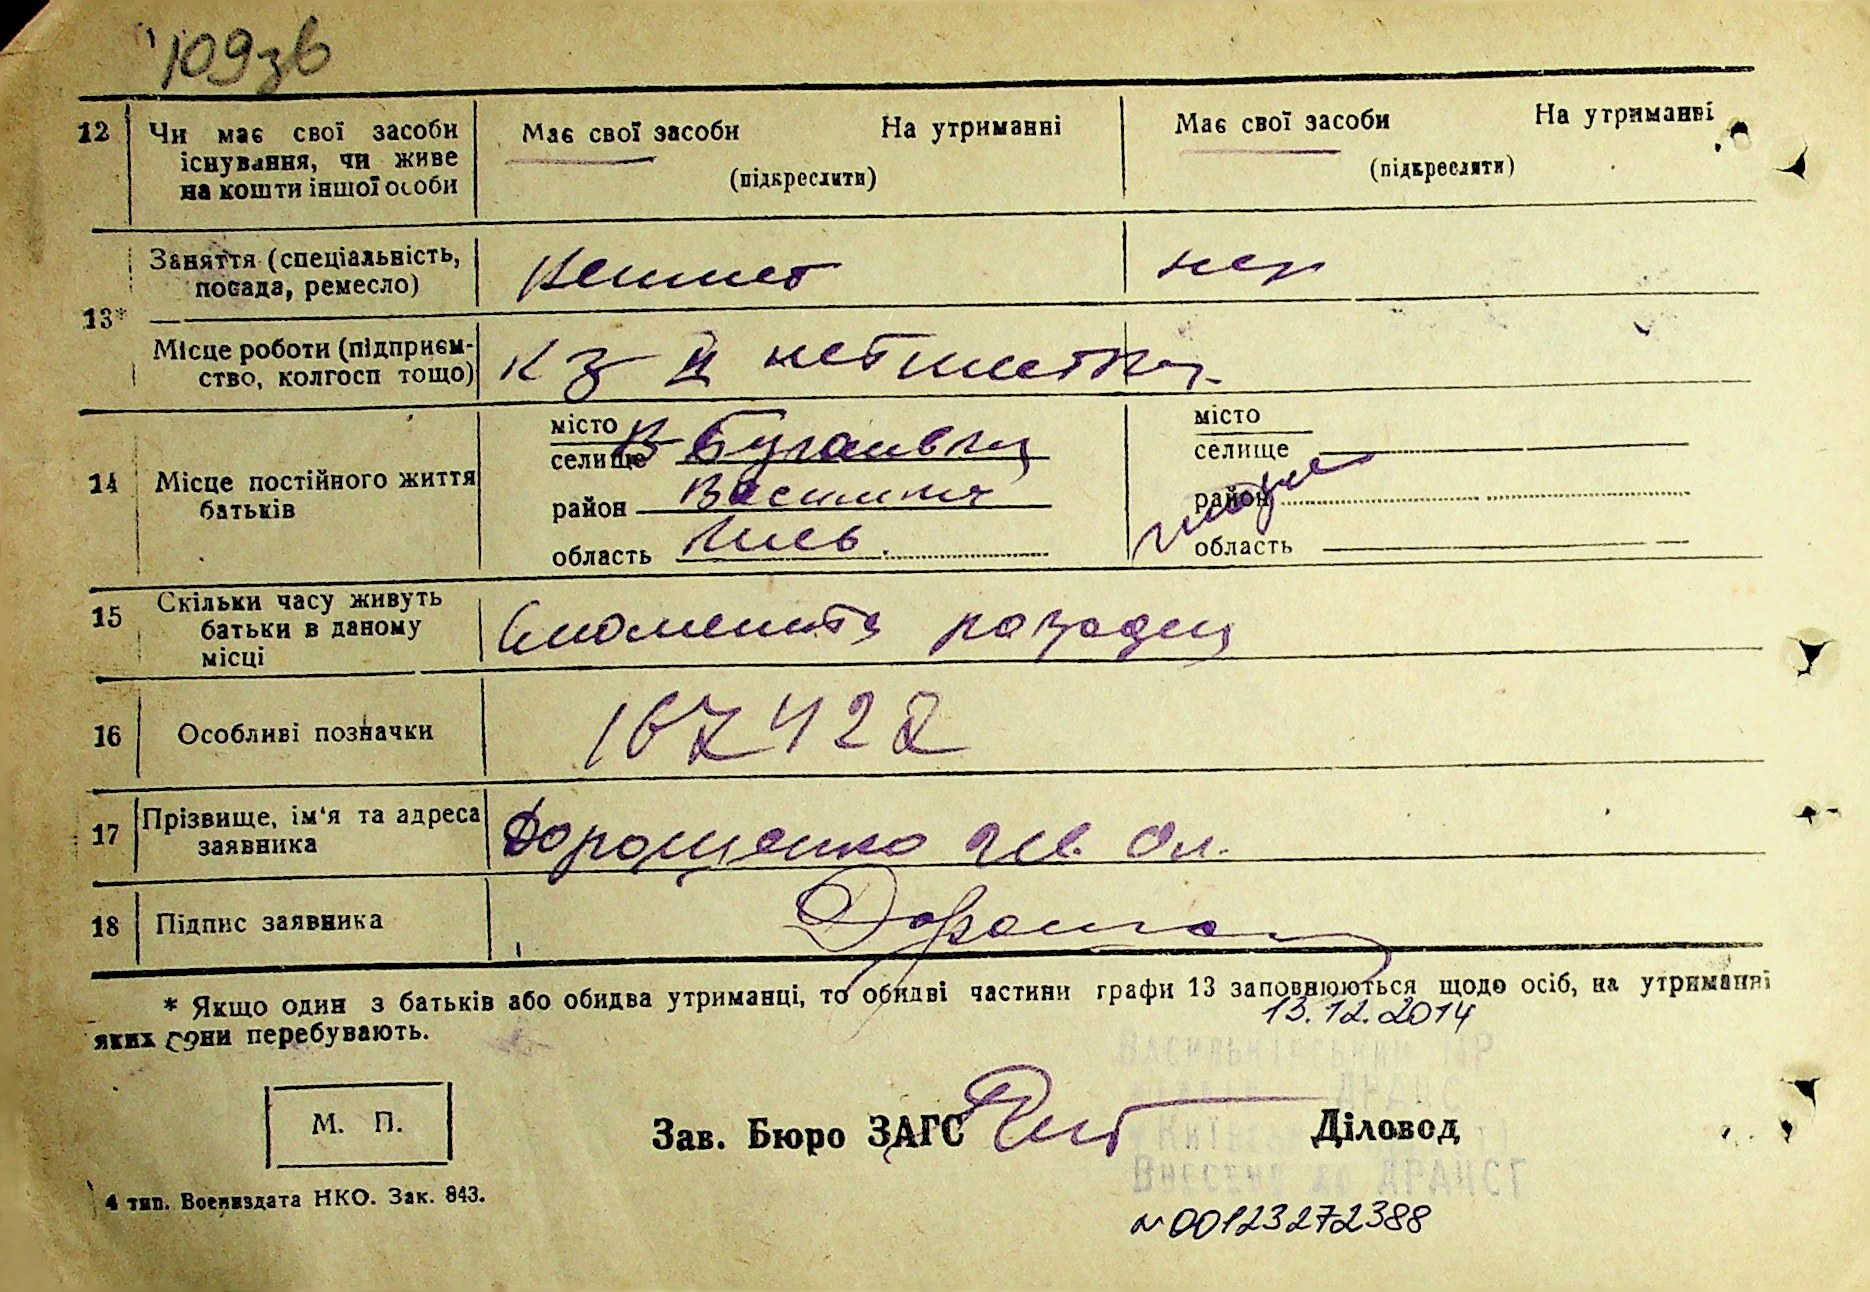 109зв
12 Чи має свої засоби існування, чи живе на кошти іншої особи
Має свої засоби На утриманні
(підкреслити)
Має свої засоби На утриманні
(підкреслити)
13*
Заняття (спеціальність, посада, ремесло)
Місце роботи (підприємство, колгосп тощо)
14 Місце постійного життя батьків
місто
селище Бугаївка
район Васильк
область Київ.
місто
селище
район
область
15 Скільки часу живуть батьки в даному місці
16 Особливі позначки
167422
17 Прізвище, ім'я та адреса заявника
Дорощенко Ол.
18 Підпис заявника
* Якщо один з батьків або обидва утриманці, то обидві частини графи 13 заповнюються щодо осіб, на утриманні
яких вони перебувають.
13.12.2014
Васильківський МР
ДРАЦС
Внесено до ДРАЦСГ
М. П.
Зав. Бюро ЗАГС
Діловод
4 тип. Воениздата НКО. Зак. 843.
№00123272388